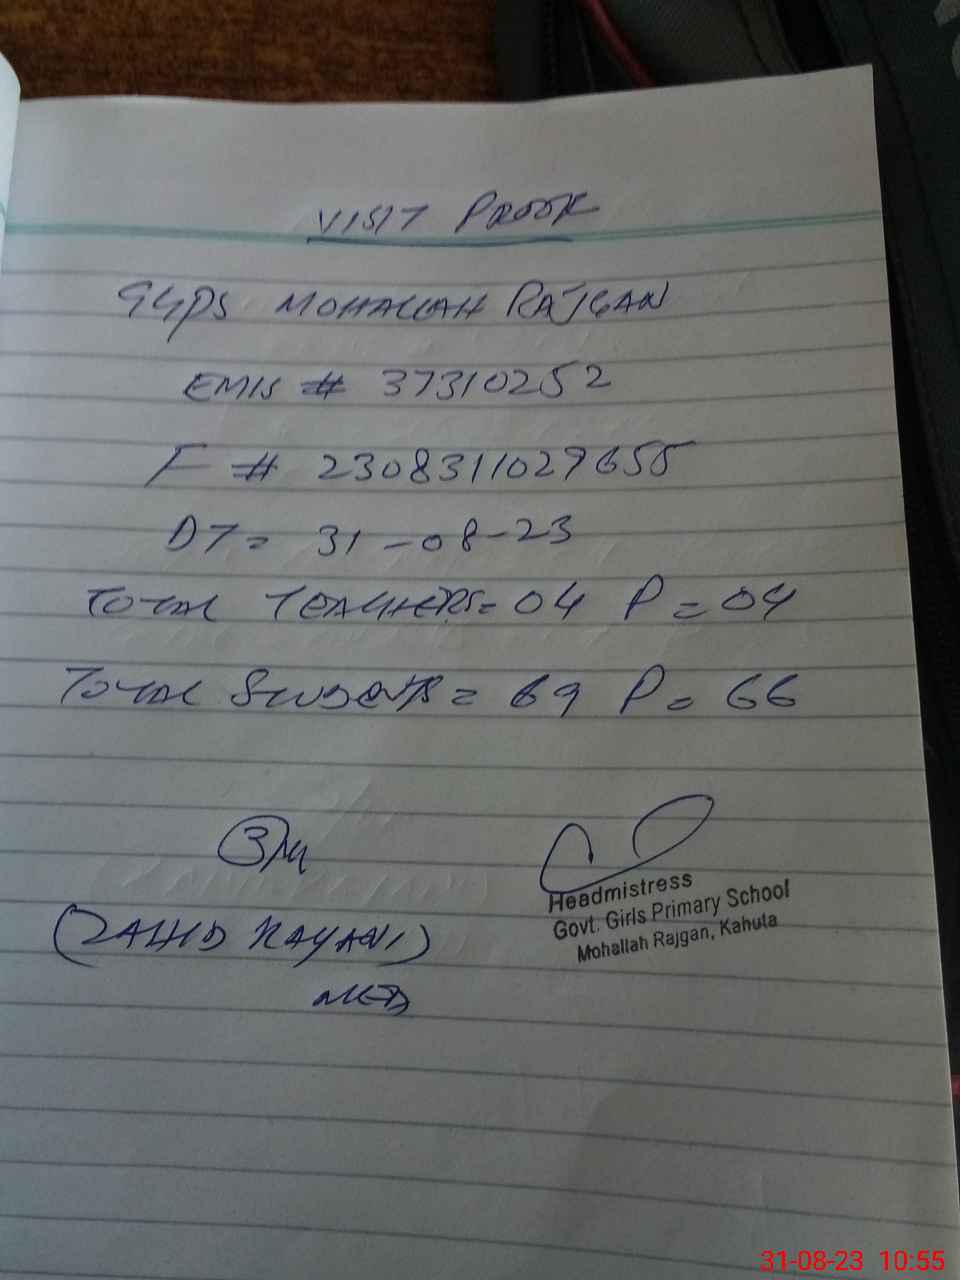 VISIT PROOF
GGPS MOHALLAH RAJGAN
EMIS # 37310252
F # 2308311029655
DT = 31-08-23
TOTAL TEACHERS = 04 P = 04
TOTAL STUDENTS = 69 P = 66
(ZAHID KAYANI)
Headmistress
Govt. Girls Primary School
Mohallah Rajgan, Kahuta
31-08-23 10:55